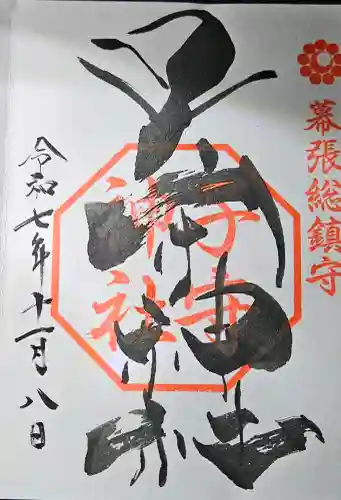 幕張総鎮守
子守
神社
子守神社
令和七年十一月八日